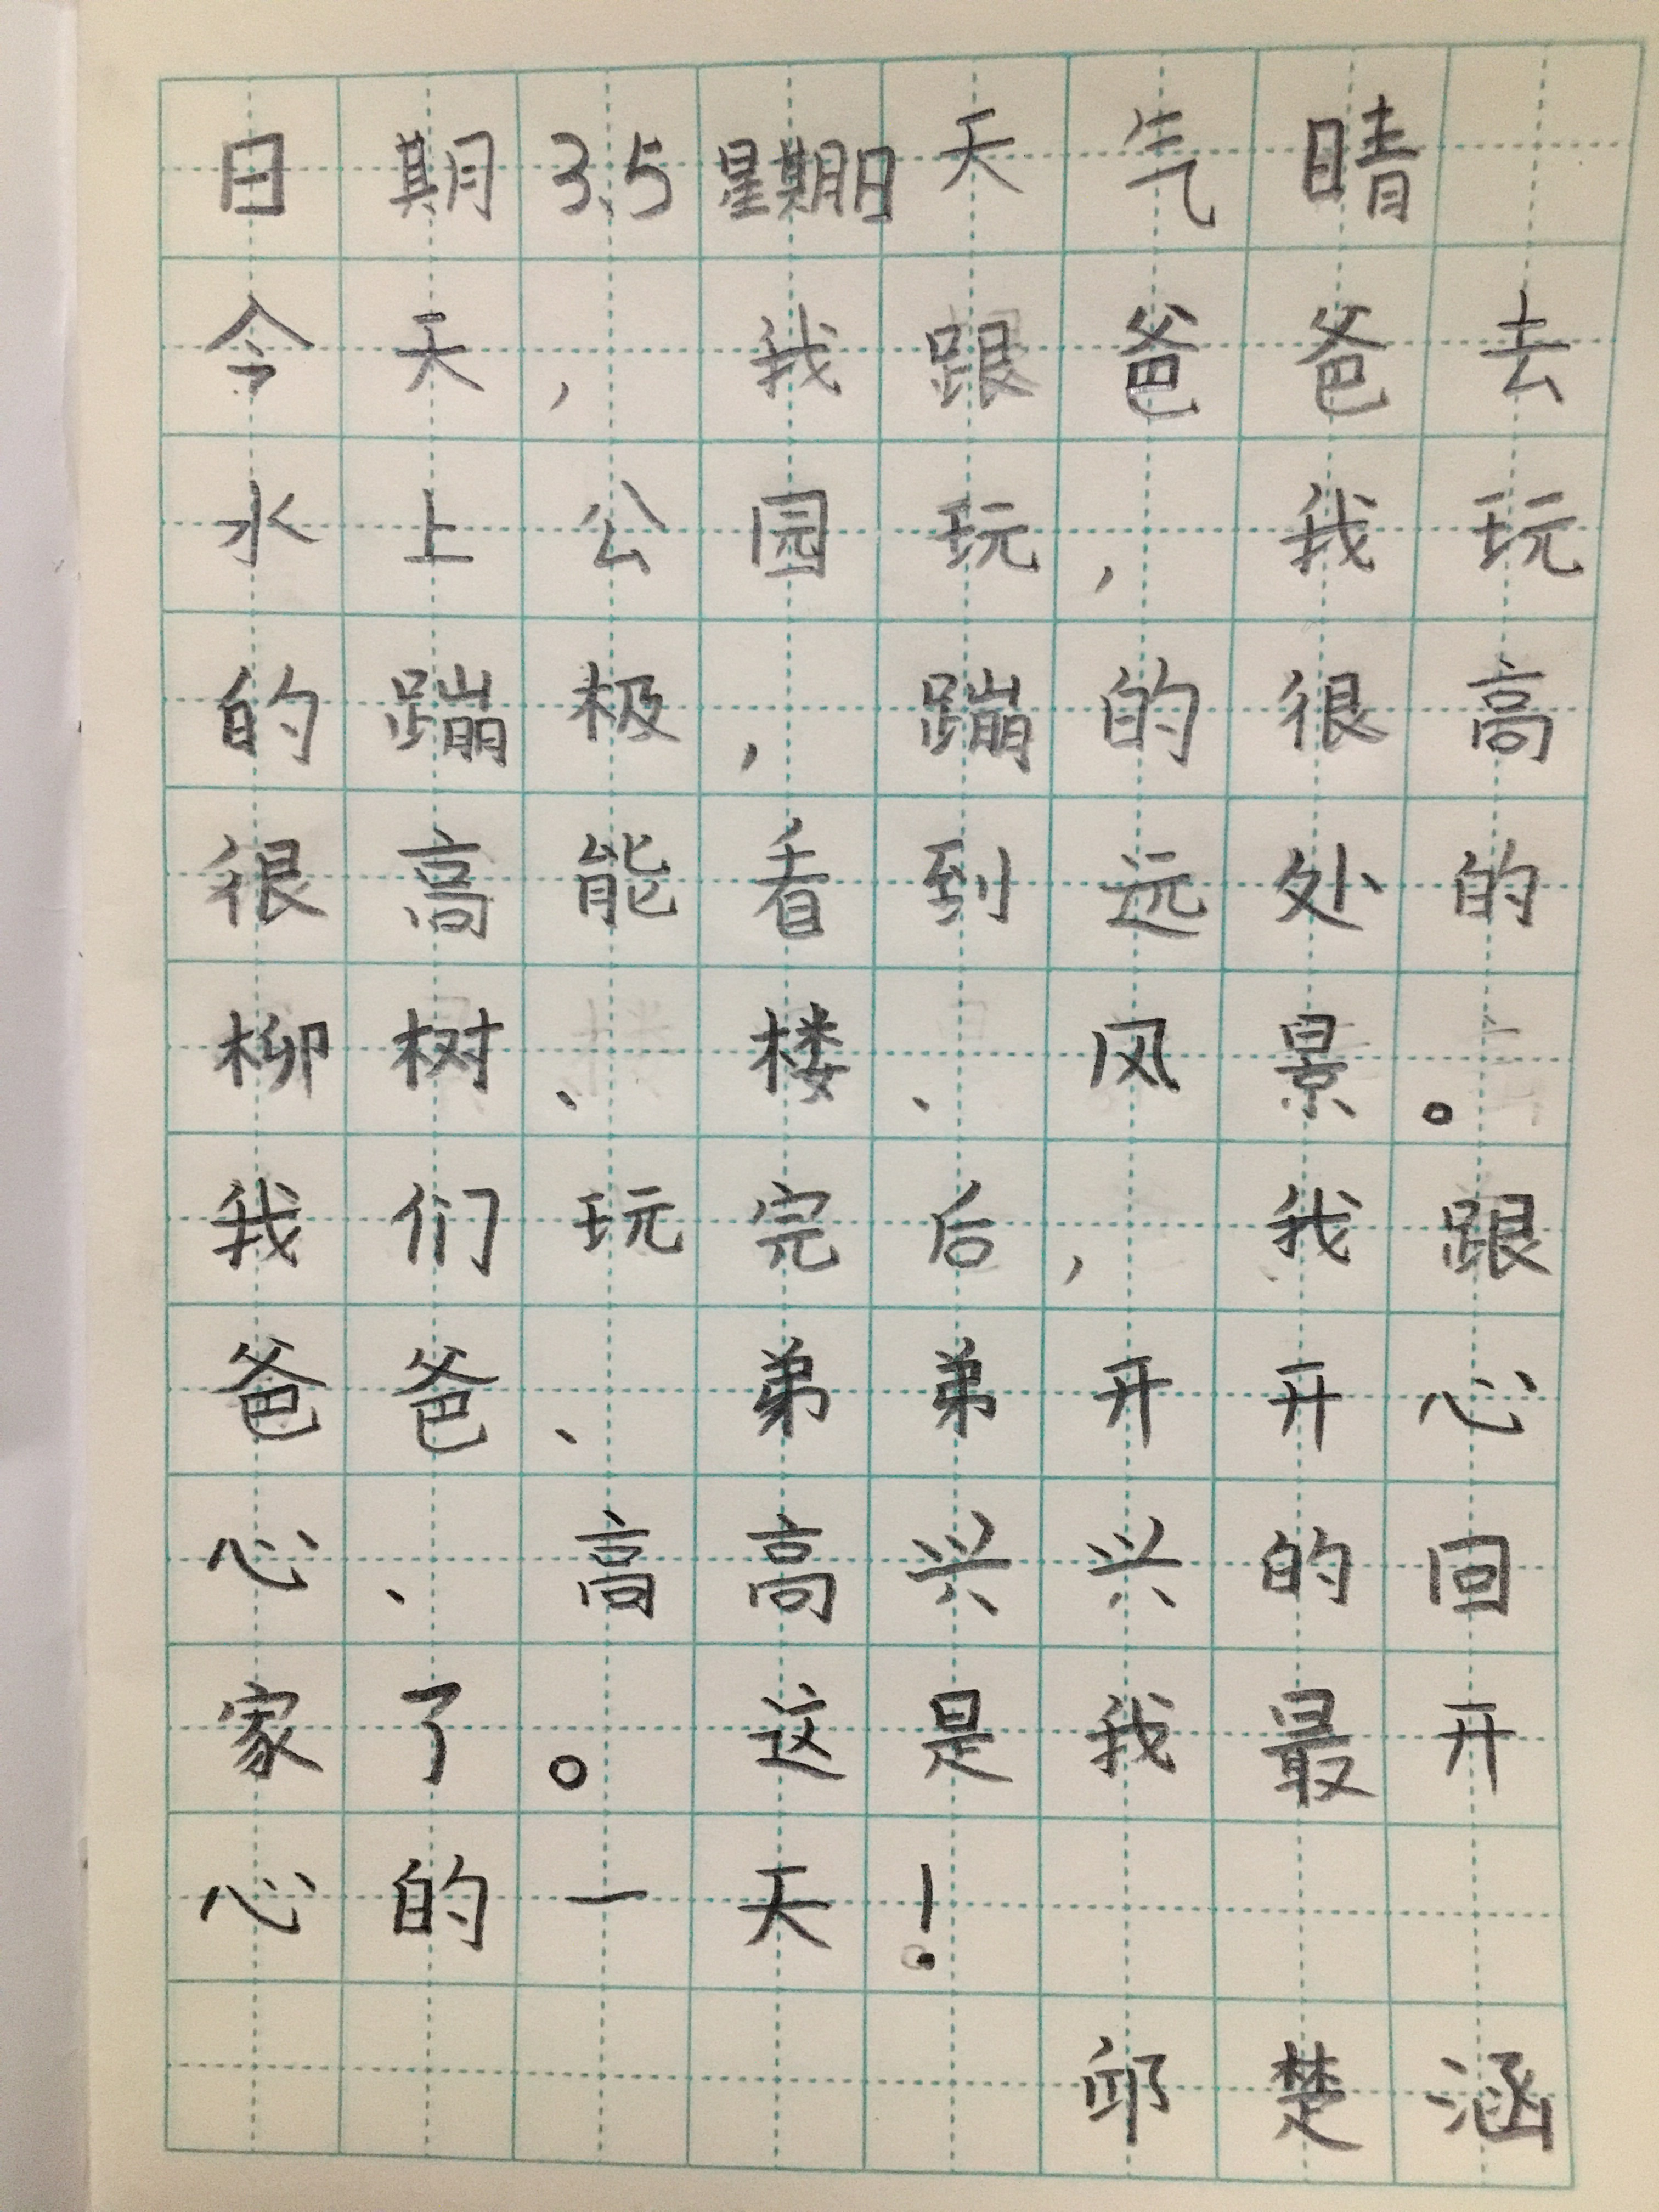 日期3.5星期日天气晴
今天，我跟爸爸去
水上公园玩，我玩
的蹦极，蹦的很高
很高能看到远处的
柳树、楼、风景。
我们玩完后，我跟
爸爸、弟弟开开心
心、高高兴兴的回
家了。这是我最开
心的一天！
邱楚涵